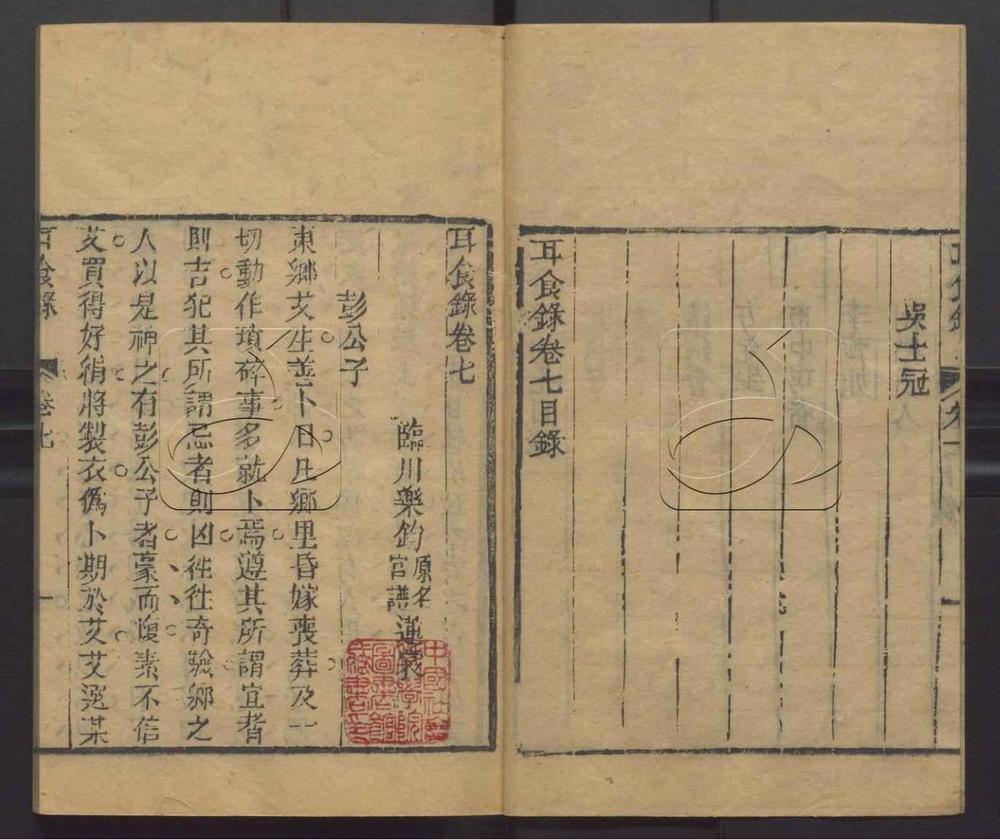 吳士冠
耳食錄卷七目錄
耳食錄卷七
臨川樂鈞原名宮譜蓮裳
彭公子
東鄉艾生善卜日凡鄉里昏嫁喪葬及一
切動作瑣碎事多就卜焉遵其所謂宜者
則吉犯其所謂忌者則凶往往奇驗鄉之
人以是神之有彭公子者豪而愎素不信
艾買得好絹將製衣僞卜期於艾艾選某
耳食錄 卷七 一